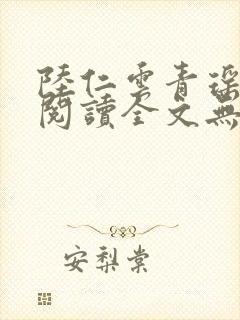 陸仁雲青瑶
閱讀全文無
安梨棠